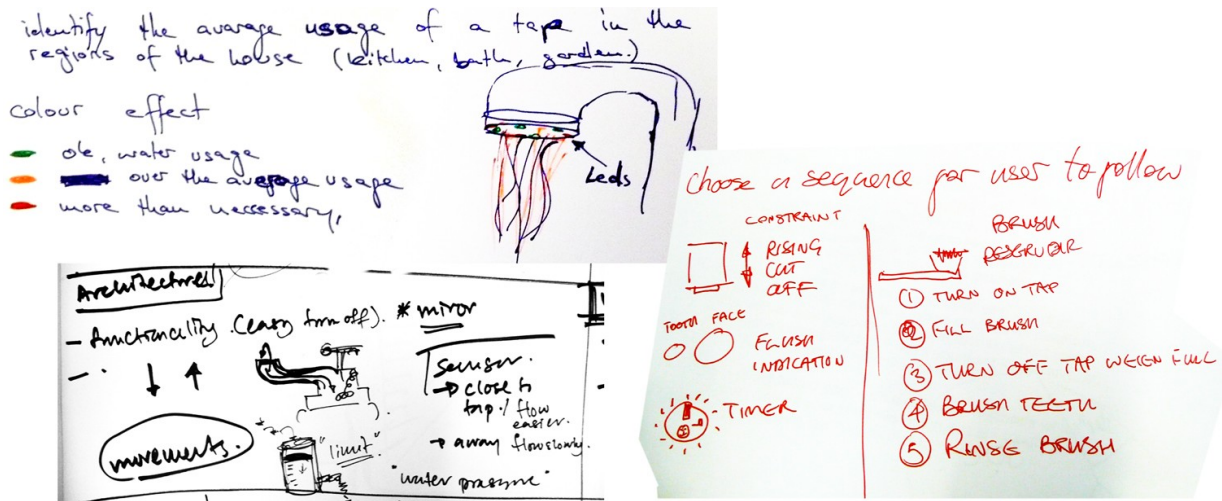 identify the avarage usage of a tape in the
regions of the house (kitchen, bath, garden.)
colour effect
ok, water usage
over the average usage
more than neccessary,
Leds
Architectures
- functionality (easy turn off). * miror
Sensor.
→ close to
tap / flow
easier.
→ away flow slowly.
movements.
"limit"
"water pressure"
choose a sequence for user to follow
CONSTRAINT
RISING
CUT
OFF
TOOTH FACE
FLUSH
INDICATION
TIMER
BRUSH
RESERVOIR
① TURN ON TAP
② FILL BRUSH
③ TURN OFF TAP WHEN FULL
④ BRUSH TEETH
⑤ RINSE BRUSH